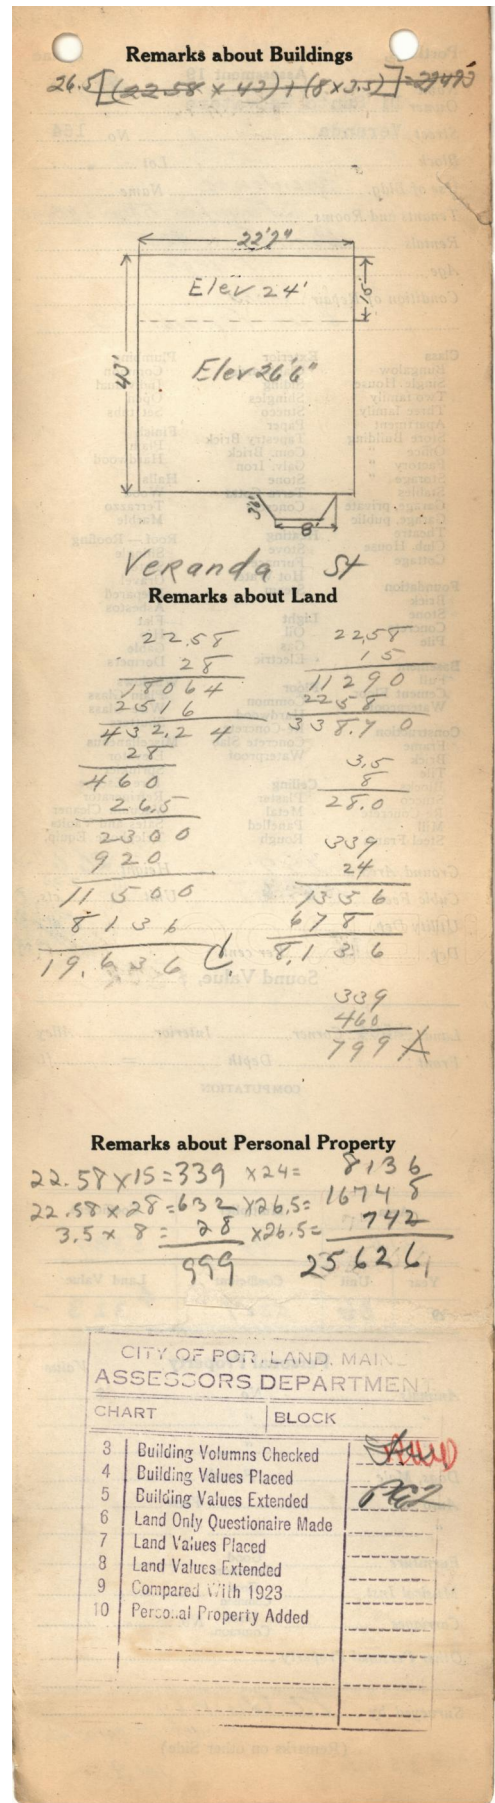 Remarks about Buildings
26.5[(22.58 x 42)+(8x3.5)]=
22'7"
Elev 24'
15'
43'
Elev 26'6"
3'6"
8'
Veranda St
Remarks about Land
22.58
28
18064
2516
432.24
28
460
26.5
2300
920
11500
8136
19,636 C.
22.58
15
11290
2258
338.70
3.5
8
28.0
339
24
1356
678
8,136
339
460
799 A
Remarks about Personal Property
22.58x15=339 x24= 8136
22.58x28=632 x26.5= 16748
3.5x 8= 28 x26.5= 742
999 25626
CITY OF POR.LAND. MAIN
ASSESSORS DEPARTMEN
CHART BLOCK
3 Building Volumns Checked
4 Building Values Placed
5 Building Values Extended
6 Land Only Questionaire Made
7 Land Values Placed
8 Land Values Extended
9 Compared With 1923
10 Personal Property Added